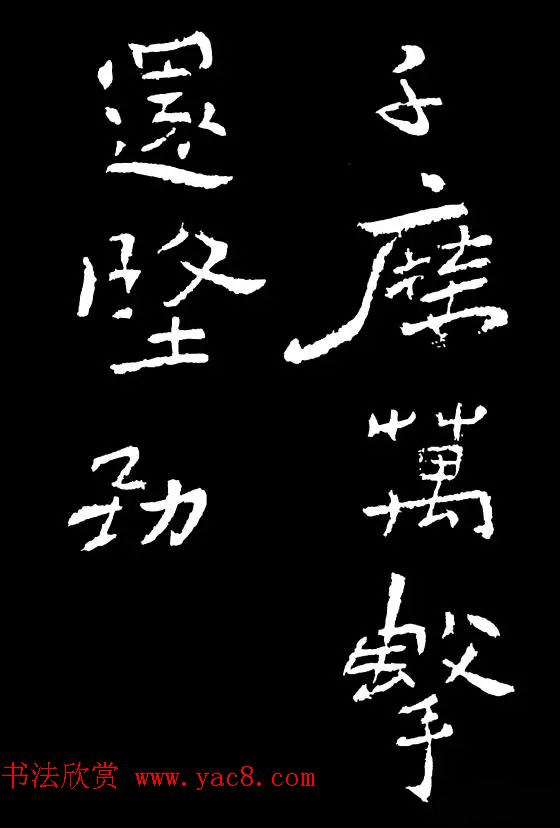 千磨萬擊
還堅劲
书法欣赏 www.yac8.com